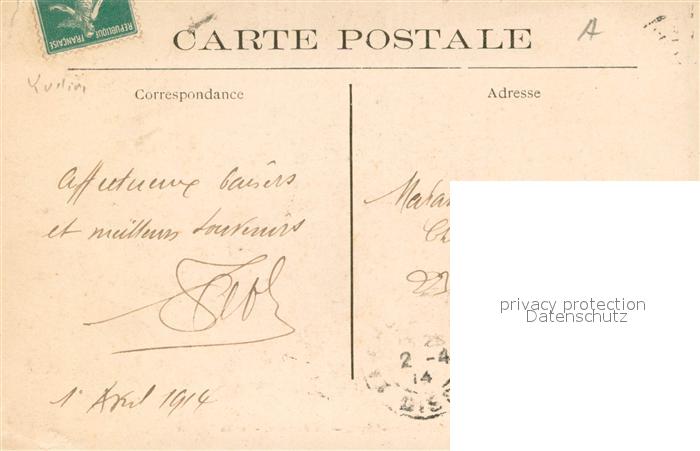 REPUBLIQUE
FRANÇAISE
CARTE POSTALE
A
Correspondance
Adresse
Affectueux baisers
et meilleurs souvenirs
1er Avril 1914
22
2 -4
14
privacy protection
Datenschutz